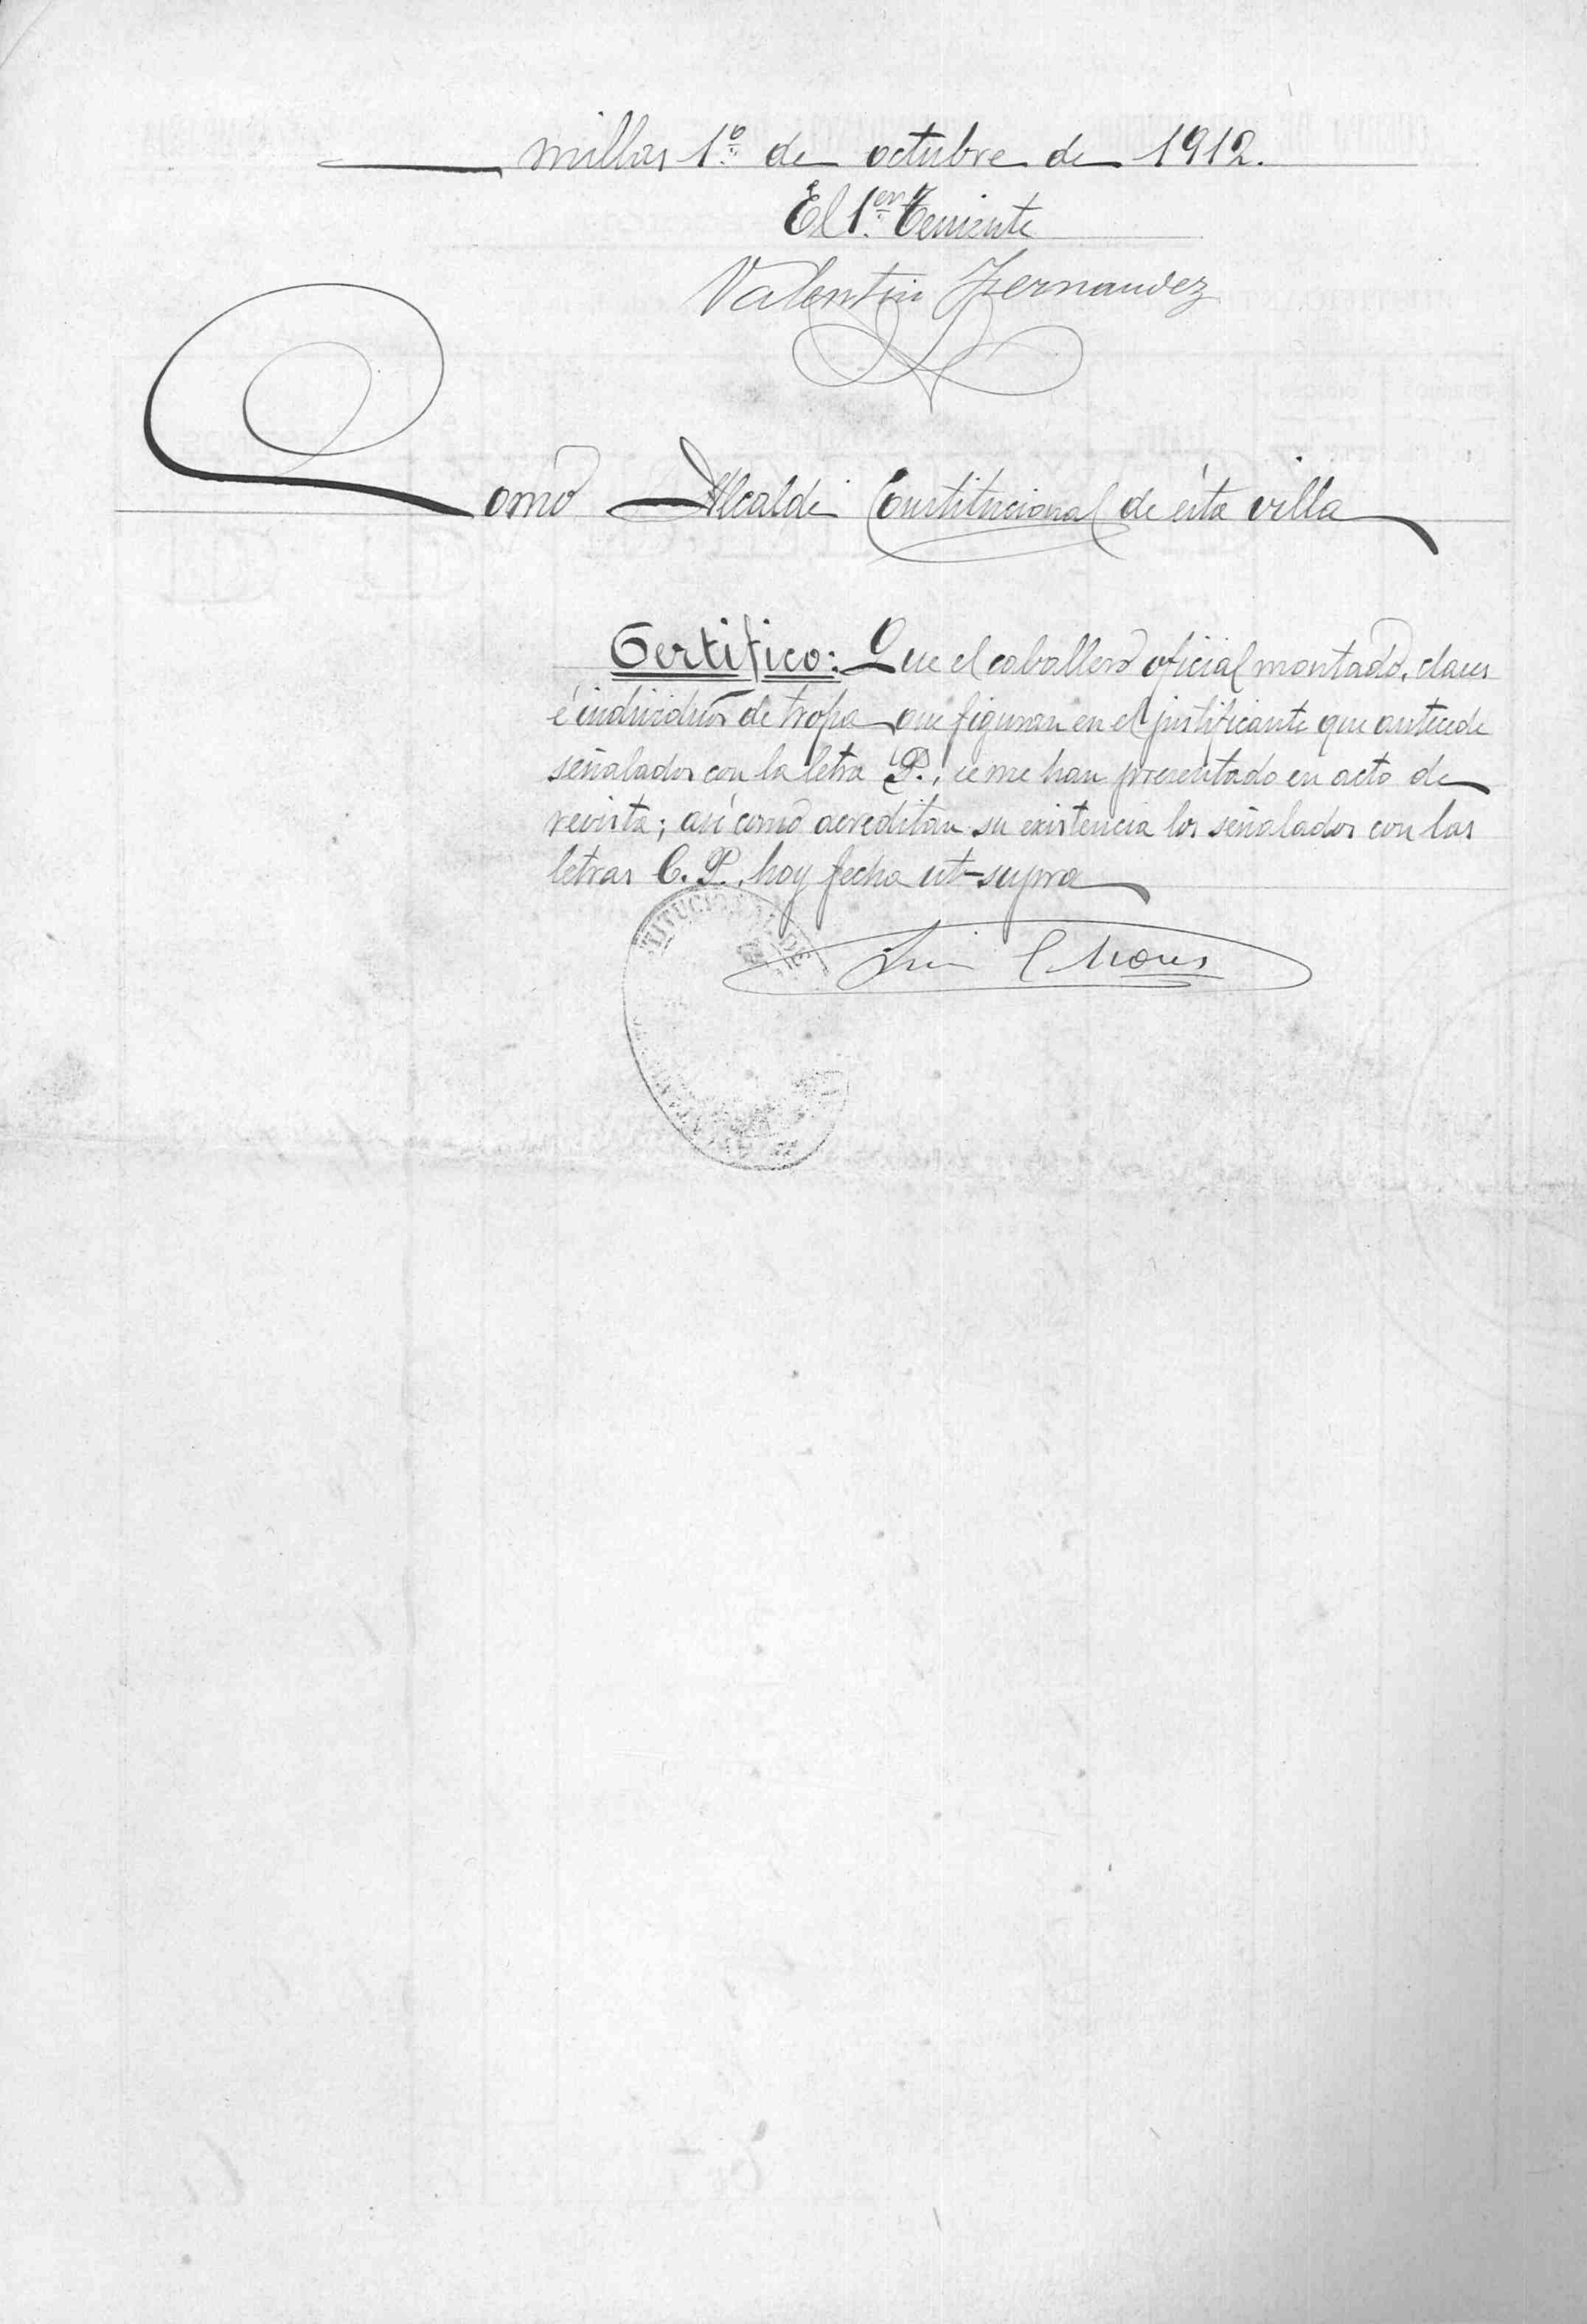 millas 1º de octubre de 1912.
El 1er Teniente
Valentin Fernandez
Como Alcalde Constitucional de ésta villa
Certifico: Que el caballero oficial montado, clases
é individuos de tropa que figuran en el justificante que antecede
señalados con la letra P., se me han presentado en acto de
revista; así como acreditan su existencia los señalados con las
letras C. P. hoy fecha ut-supra
Luis
TITUCIONAL DE